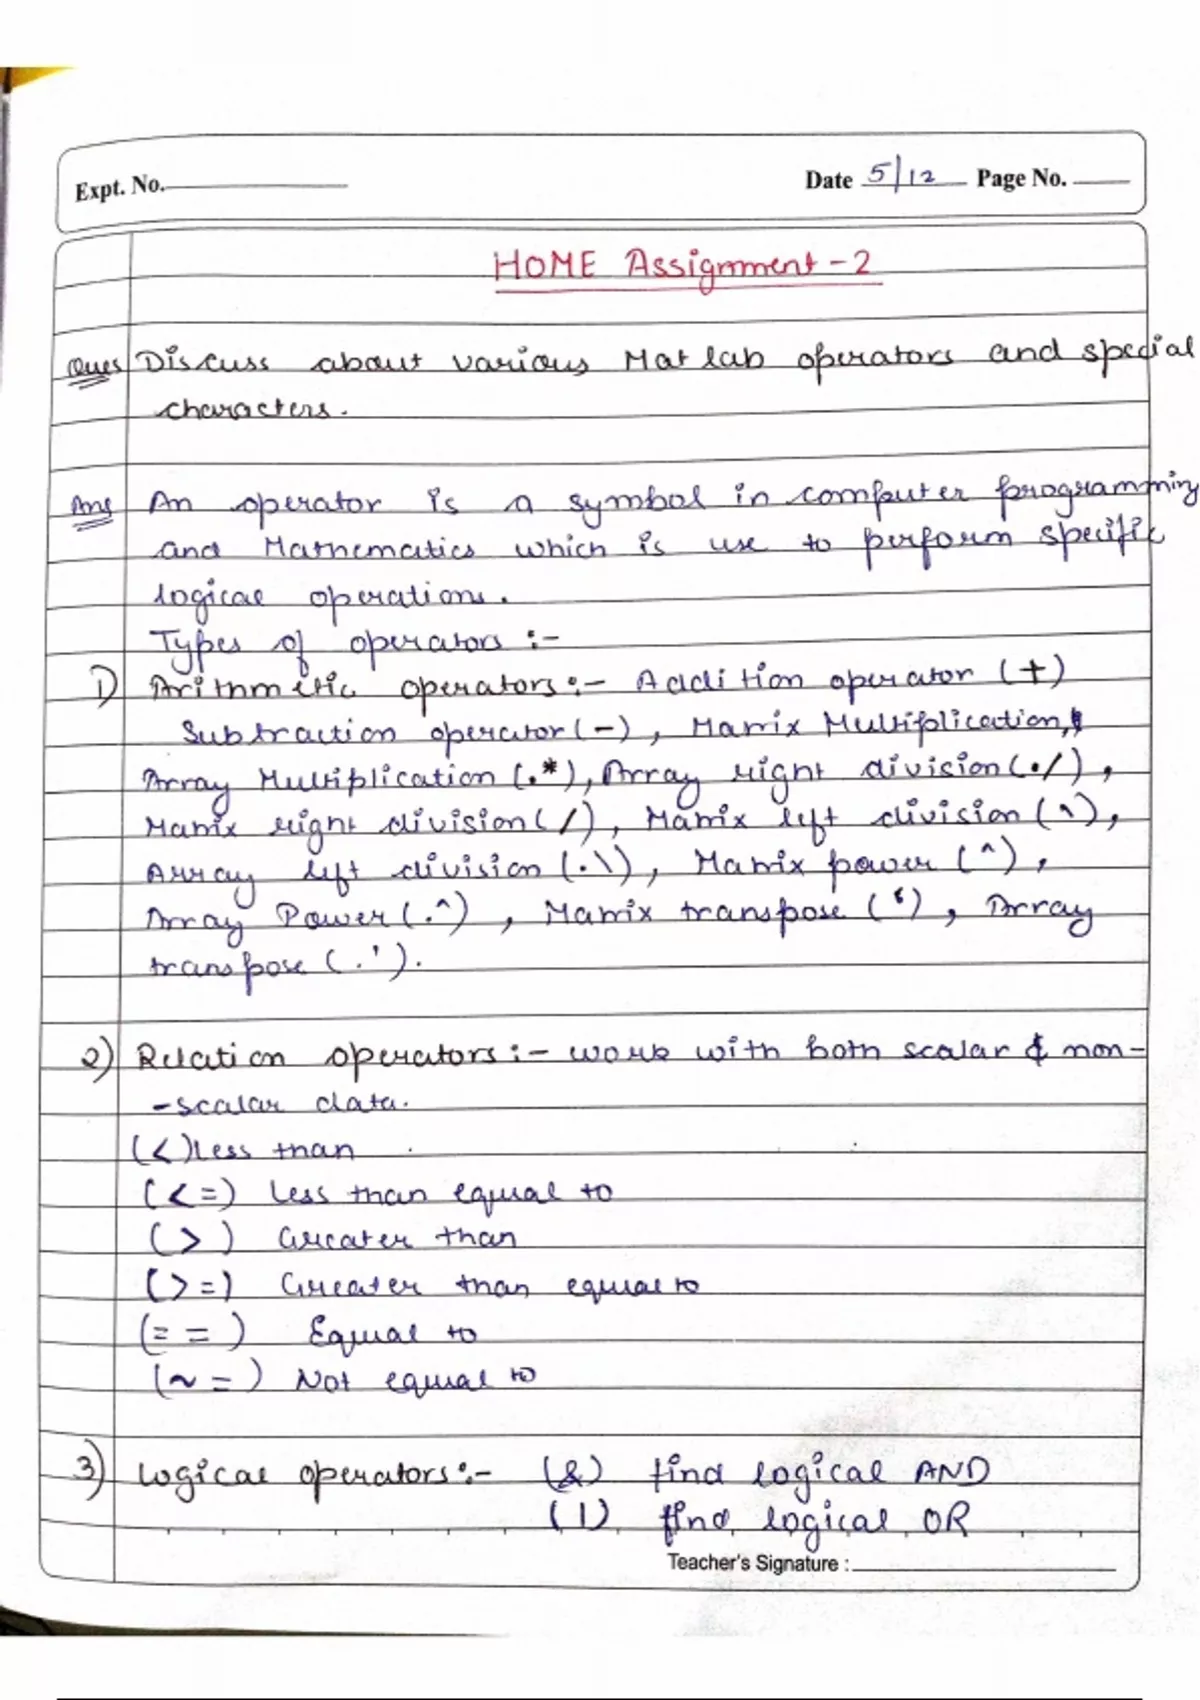 Expt. No.
Date 5/12 Page No.
HOME Assignment - 2
Ques Discuss about various Matlab operators and special
characters.
Ans An operator is a symbol in computer programming
and Mathematics which is use to perform specific
logical operations.
Types of operators :-
1) Arithmetic operators :- Addition operator (+)
Subtraction operator (-), Matrix Multiplication,
Array Multiplication (.*), Array right division (./),
Matrix right division (/), Matrix left division (\),
Array left division (.\), Matrix power (^),
Array Power (.^), Matrix transpose ('), Array
transpose (.').
2) Relation operators :- work with both scalar & non-
-scalar data.
(<) less than
(<=) Less than equal to
(>) Greater than
(>=) Greater than equal to
(==) Equal to
(~=) Not equal to
3) Logical operators :- (&) find logical AND
(|) find logical OR
Teacher's Signature :